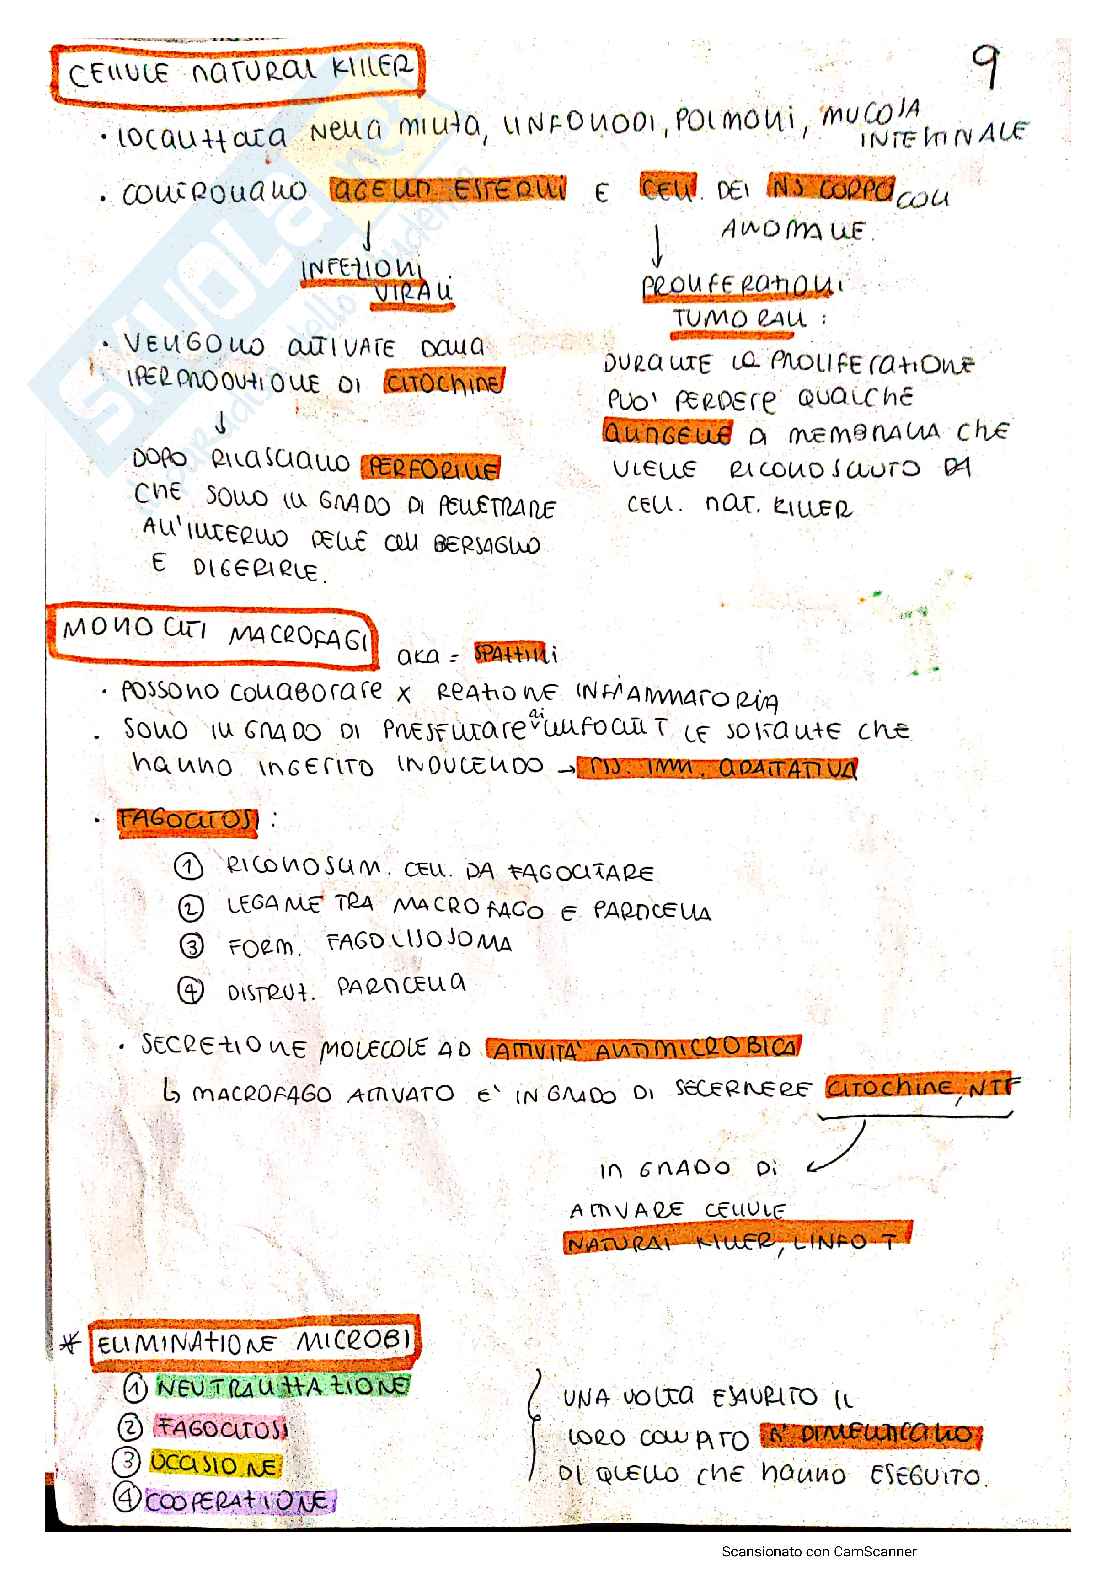 9
CELLULE NATURAL KILLER
· LOCALIZZATA NELLA MILZA, LINFONODI, POLMONI, MUCOSA
INTESTINALE
· CONTROLLANO AGENTI ESTERNI E CELL. DEL NS CORPO CON
ANOMALIE.
↓
INFEZIONI
VIRALI
↓
PROLIFERAZIONI
TUMORALI :
DURANTE LA PROLIFERAZIONE
PUO' PERDERE QUALCHE
ANTIGENE DI MEMBRANA CHE
VIENE RICONOSCIUTO DA
CELL. NAT. KILLER
· VENGONO ATTIVATE DALLA
IPERPRODUZIONE DI CITOCHINE
↓
DOPO RILASCIANO PERFORINE
CHE SONO IN GRADO DI PENETRARE
ALL'INTERNO DELLE CELL BERSAGLIO
E DIGERIRLE.
MONOCITI MACROFAGI
aka = SPAZZINI
· POSSONO COLLABORARE X REAZIONE INFIAMMATORIA
· SONO IN GRADO DI PRESENTARE ai LINFOCITI T LE SOSTANZE CHE
HANNO INGERITO INDUCENDO → RIS. IMM. ADATTATIVA
· FAGOCITOSI :
① RICONOSCIM. CELL. DA FAGOCITARE
② LEGAME TRA MACROFAGO E PARTICELLA
③ FORM. FAGOLISOSOMA
④ DISTRUZ. PARTICELLA
· SECREZIONE MOLECOLE AD ATTIVITÀ ANTIMICROBICA
↳ MACROFAGO ATTIVATO E' IN GRADO DI SECERNERE CITOCHINE, NTF
IN GRADO DI
ATTIVARE CELLULE
NATURAL KILLER, LINFO T
* ELIMINAZIONE MICROBI
① NEUTRALIZZAZIONE
② FAGOCITOSI
③ UCCISIONE
④ COOPERAZIONE
UNA VOLTA ESAURITO IL
LORO COMPITO SI DIMENTICANO
DI QUELLO CHE HANNO ESEGUITO.
Scansionato con CamScanner